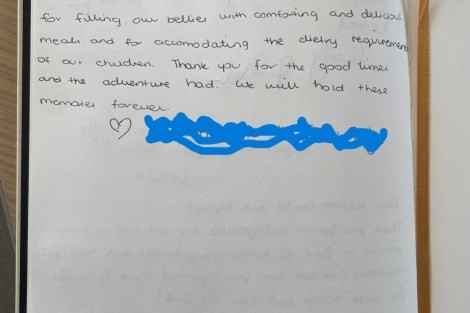 for filling our bellies with comforting and delicious
meals and for accomodating the dietry requirements
of our children. Thank you for the good times
and the adventure had. We will hold these
memories forever.